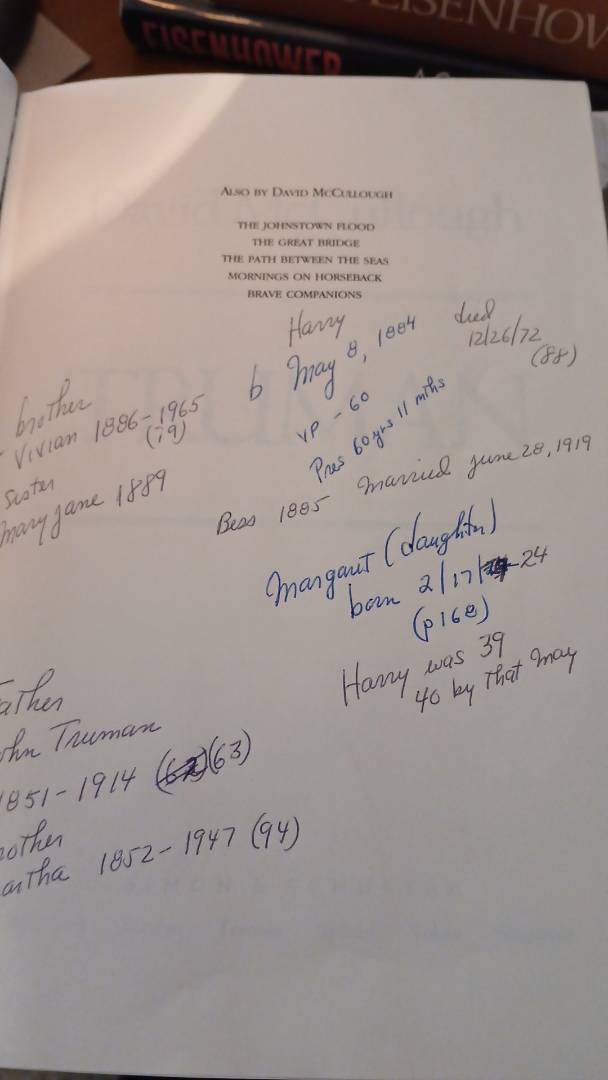 EISENHOW
EISENHOWER
ALSO BY DAVID MCCULLOUGH
THE JOHNSTOWN FLOOD
THE GREAT BRIDGE
THE PATH BETWEEN THE SEAS
MORNINGS ON HORSEBACK
BRAVE COMPANIONS
Harry
b May 8, 1884
died
12/26/72
(88)
VP - 60
Pres 60 yrs 11 mths
brother
Vivian 1886-1965
(79)
Sister
Mary Jane 1889
Bess 1885 Married June 28, 1919
Margaret (daughter)
born 2/17/24
(p168)
Harry was 39
40 by that May
ather
ohn Truman
1851-1914 (62) (63)
other
artha 1852-1947 (94)
TRUMAN
SIMON & SCHUSTER